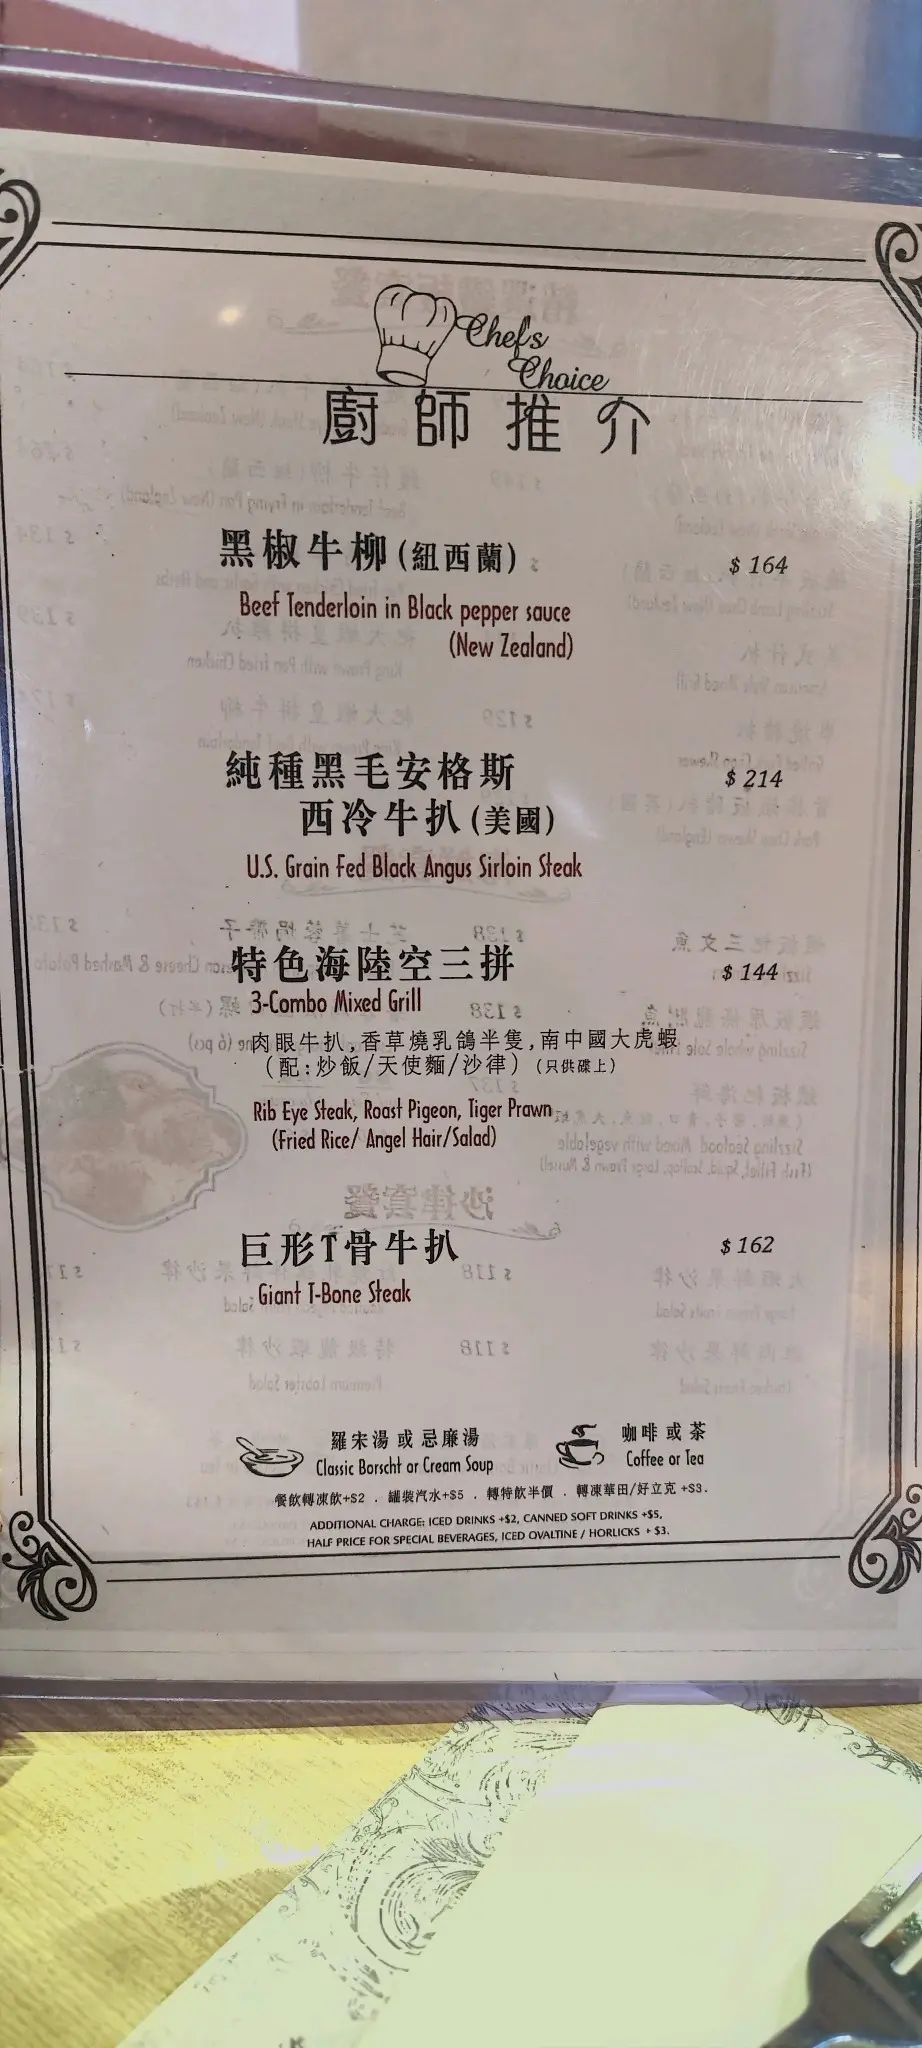 Chef's
Choice
廚師推介
黑椒牛柳(紐西蘭)
$ 164
Beef Tenderloin in Black pepper sauce
(New Zealand)
純種黑毛安格斯
$ 214
西冷牛扒(美國)
U.S. Grain Fed Black Angus Sirloin Steak
特色海陸空三拼
$ 144
3-Combo Mixed Grill
肉眼牛扒,香草燒乳鴿半隻,南中國大虎蝦
(配:炒飯/天使麵/沙律)(只供碟上)
Rib Eye Steak, Roast Pigeon, Tiger Prawn
(Fried Rice/ Angel Hair/Salad)
巨形T骨牛扒
$ 162
Giant T-Bone Steak
羅宋湯或忌廉湯
Classic Borscht or Cream Soup
咖啡或茶
Coffee or Tea
餐飲轉凍飲+$2 . 罐裝汽水+$5 . 轉特飲半價 . 轉凍華田/好立克 +$3.
ADDITIONAL CHARGE: ICED DRINKS +$2, CANNED SOFT DRINKS +$5,
HALF PRICE FOR SPECIAL BEVERAGES, ICED OVALTINE / HORLICKS + $3.